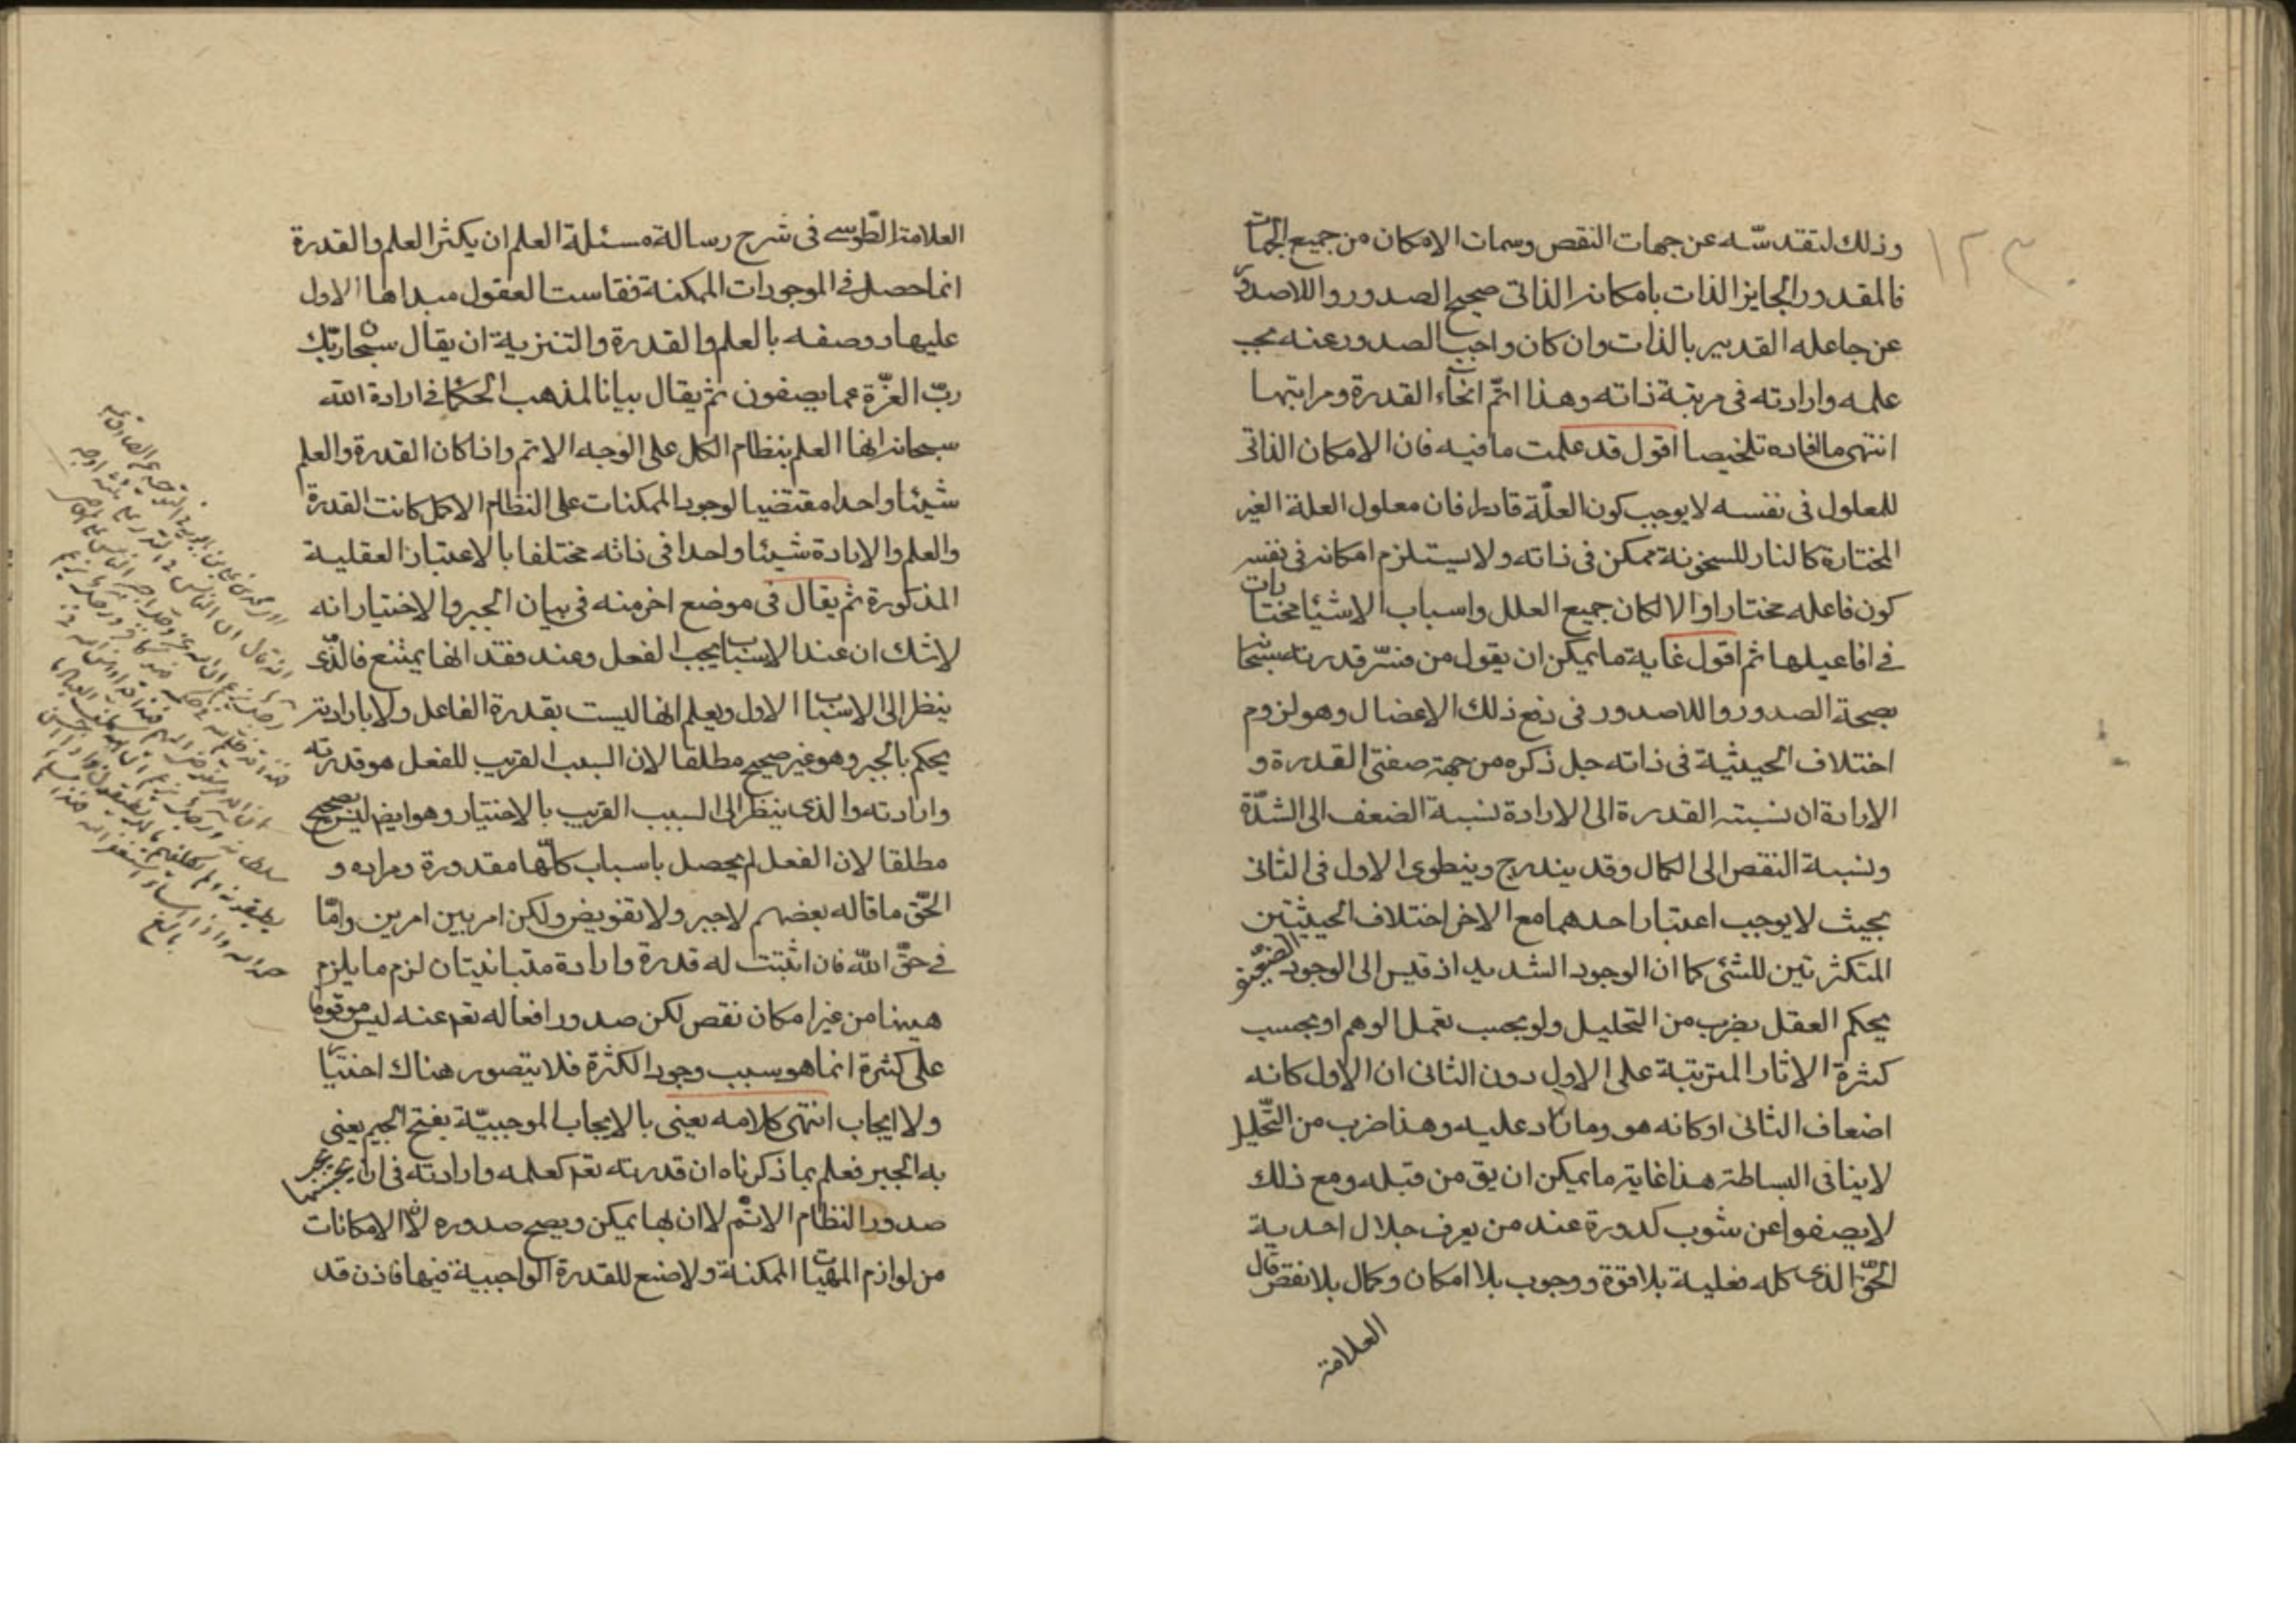 ١٢٣
وذلك لتقدسه عن جهات النقص وسمات الامكان من جميع الجهات
فالمقدور الجايز الذات بامكانه الذاتى صحيح الصدور واللاصدور
عن جاعله القدير بالذات وان كان واجب الصدور عنه بحسب
علمه وارادته فى مرتبة ذاته وهذا اتم انحاء القدرة ومراتبها
انتهى ما افاده تلخيصا اقول قد علمت ما فيه فان الامكان الذاتى
للمعلول فى نفسه لا يوجب كون العلّة قادرا فان معلول العلة الغير
المختارة كالنار للسخونة ممكن فى ذاته ولا يستلزم امكانه فى نفسه
كون فاعله مختارا والا لكان جميع العلل واسباب الاشيا مختارات
فى افاعيلها ثم اقول غاية ما يمكن ان يقول من فسّر قدرته سبحانه
بصحة الصدور واللاصدور فى دفع ذلك الاعضال وهو لزوم
اختلاف الحيثية فى ذاته جل ذكره من جهة صفتى القدرة و
الارادة ان نسبته القدرة الى الارادة نسبة الضعف الى الشدّة
ونسبة النقص الى الكمال وقد يندرج وينطوى الاول فى الثانى
بحيث لا يوجب اعتبار احدهما مع الاخر اختلاف الحيثيتين
المتكثرتين للشئ كما ان الوجود الشديد اذ قيس الى الوجود الضعيف
يحكم العقل بضرب من التحليل ولو بحسب تعمل الوهم او بحسب
كثرة الاثار المترتبة على الاول دون الثانى ان الاول كانه
اضعاف الثانى او كانه هو وما زاد عليه وهذا ضرب من التّحليل
لا ينافى البساطة هذا غاية ما يمكن ان يق من قبله ومع ذلك
لا يصفوا عن شوب كدورة عند من يعرف جلال احدية
الحقّ الذى كله فعلية بلا قوة ووجوب بلا امكان وكمال بلا نقص قال
العلامة
العلامة الطّوسى فى شرح رسالة مسئلة العلم ان يكثر العلم والقدرة
انما حصل فى الموجودات الممكنة فقاست العقول مبداها الاول
عليها ووصفه بالعلم والقدرة والتنزيه ان يقال سبحان ربّك
ربّ العزّة عما يصفون ثم يقال بيانا لمذهب الحكما فى ارادة الله
سبحانه انها العلم بنظام الكل على الوجه الاتم واذا كان القدرة والعلم
شيئا واحدا مقتضيا لوجود الممكنات على النظام الاكمل كانت القدرة
والعلم والارادة شيئا واحدا فى ذاته مختلفا بالاعتبارا العقلية
المذكورة ثم يقال فى موضع اخر منه فى بيان الجبر والاختيار انه
لا شك ان عند الاسباب يجب الفعل وعند فقدانها يمتنع فالّذى
ينظر الى الاسباب الاول ويعلم انها ليست بقدرة الفاعل ولا بارادته
يحكم بالجبر وهو غير صحيح مطلقا لان السبب القريب للفعل هو قدرته
وارادته والذى ينظر الى السبب القريب بالاختيار وهو ايض ليس بصحيح
مطلقا لان الفعل لم يحصل باسباب كلّها مقدورة ومراده و
الحّق ما قاله بعضهم لا جبر ولا تفويض ولكن امر بين امرين وامّا
فى حقّ الله فان اثبتت له قدرة وارادة متباينتان لزم ما يلزم
ههنا من غير امكان نقص لكن صدور افعاله تعم عنه ليس موقوفا
على كثرة انما هو سبب وجود الكثرة فلا يتصور هناك اختيار
ولا ايجاب انتهى كلامه يعنى بالايجاب الموجبيّة بفتح الجيم يعنى
به الجبر فعلم بما ذكرناه ان قدرته تعم كعلمه وارادته فى ان يجب بحسبها
صدور النظام الاتم لا ان بها يمكن ويصح صدوره لان الامكانات
من لوازم المهيات الممكنة ولا صنع للقدرة الواجبية فيها فاذن قد